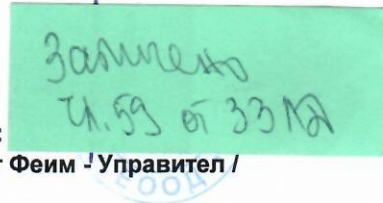 Заличено
чл. 59 от ЗЗЛД
:
Феим - Управител /
ЕООД